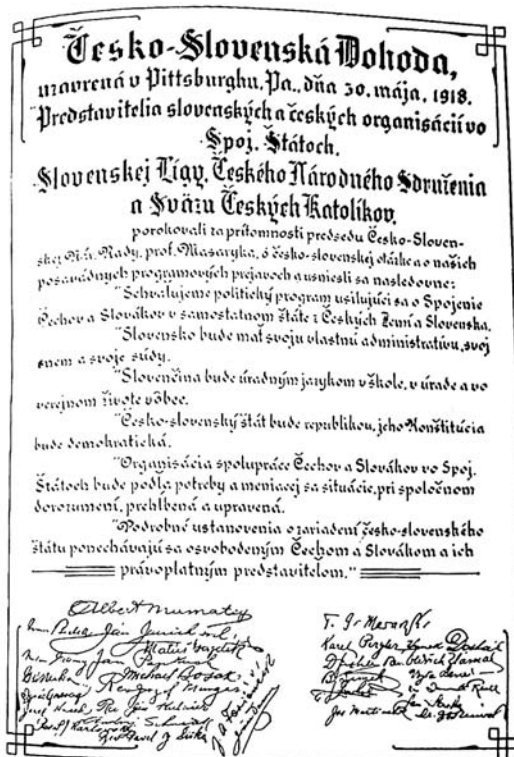 Česko-Slovenská Dohoda,
uzavrená v Pittsburghu, Pa., dňa 30. mája, 1918.
Predstavitelia slovenských a českých organisácií vo
Spoj. Štátoch,
Slovenskej Ligy, Českého Národného Sdruženia
a Sväzu Českých Katolíkov,
porokovali za prítomnosti predsedu Česko-Sloven-
skej Nár. Rady, prof. Masaryka, o česko-slovenskej otázke a o našich
posavádnych programových prejavoch a usniesli sa nasledovne:
"Schvaľujeme politický program usilujúci sa o Spojenie
Čechov a Slovákov v samostatnom štáte z Českých Zemí a Slovenska.
"Slovensko bude mať svoju vlastnú administratívu, svoj
snem a svoje súdy.
"Slovenčina bude úradným jazykom v škole, v úrade a vo
verejnom živote vôbec.
"Česko-slovenský štát bude republikou, jeho Konštitúcia
bude demokratická.
"Organisácia spolupráce Čechov a Slovákov vo Spoj.
Štátoch bude podľa potreby a meniacej sa situácie, pri spoločnom
dorozumení, prehĺbená a upravená.
"Podrobné ustanovenia o zariadení česko-slovenského
štátu ponechávajú sa osvobodeným Čechom a Slovákom a ich
právoplatným predstaviteľom."
Albert Mamatey
Ján Janček
Matúš Gazdík
Michael Bosak
T. G. Masaryk
Karel Pergler